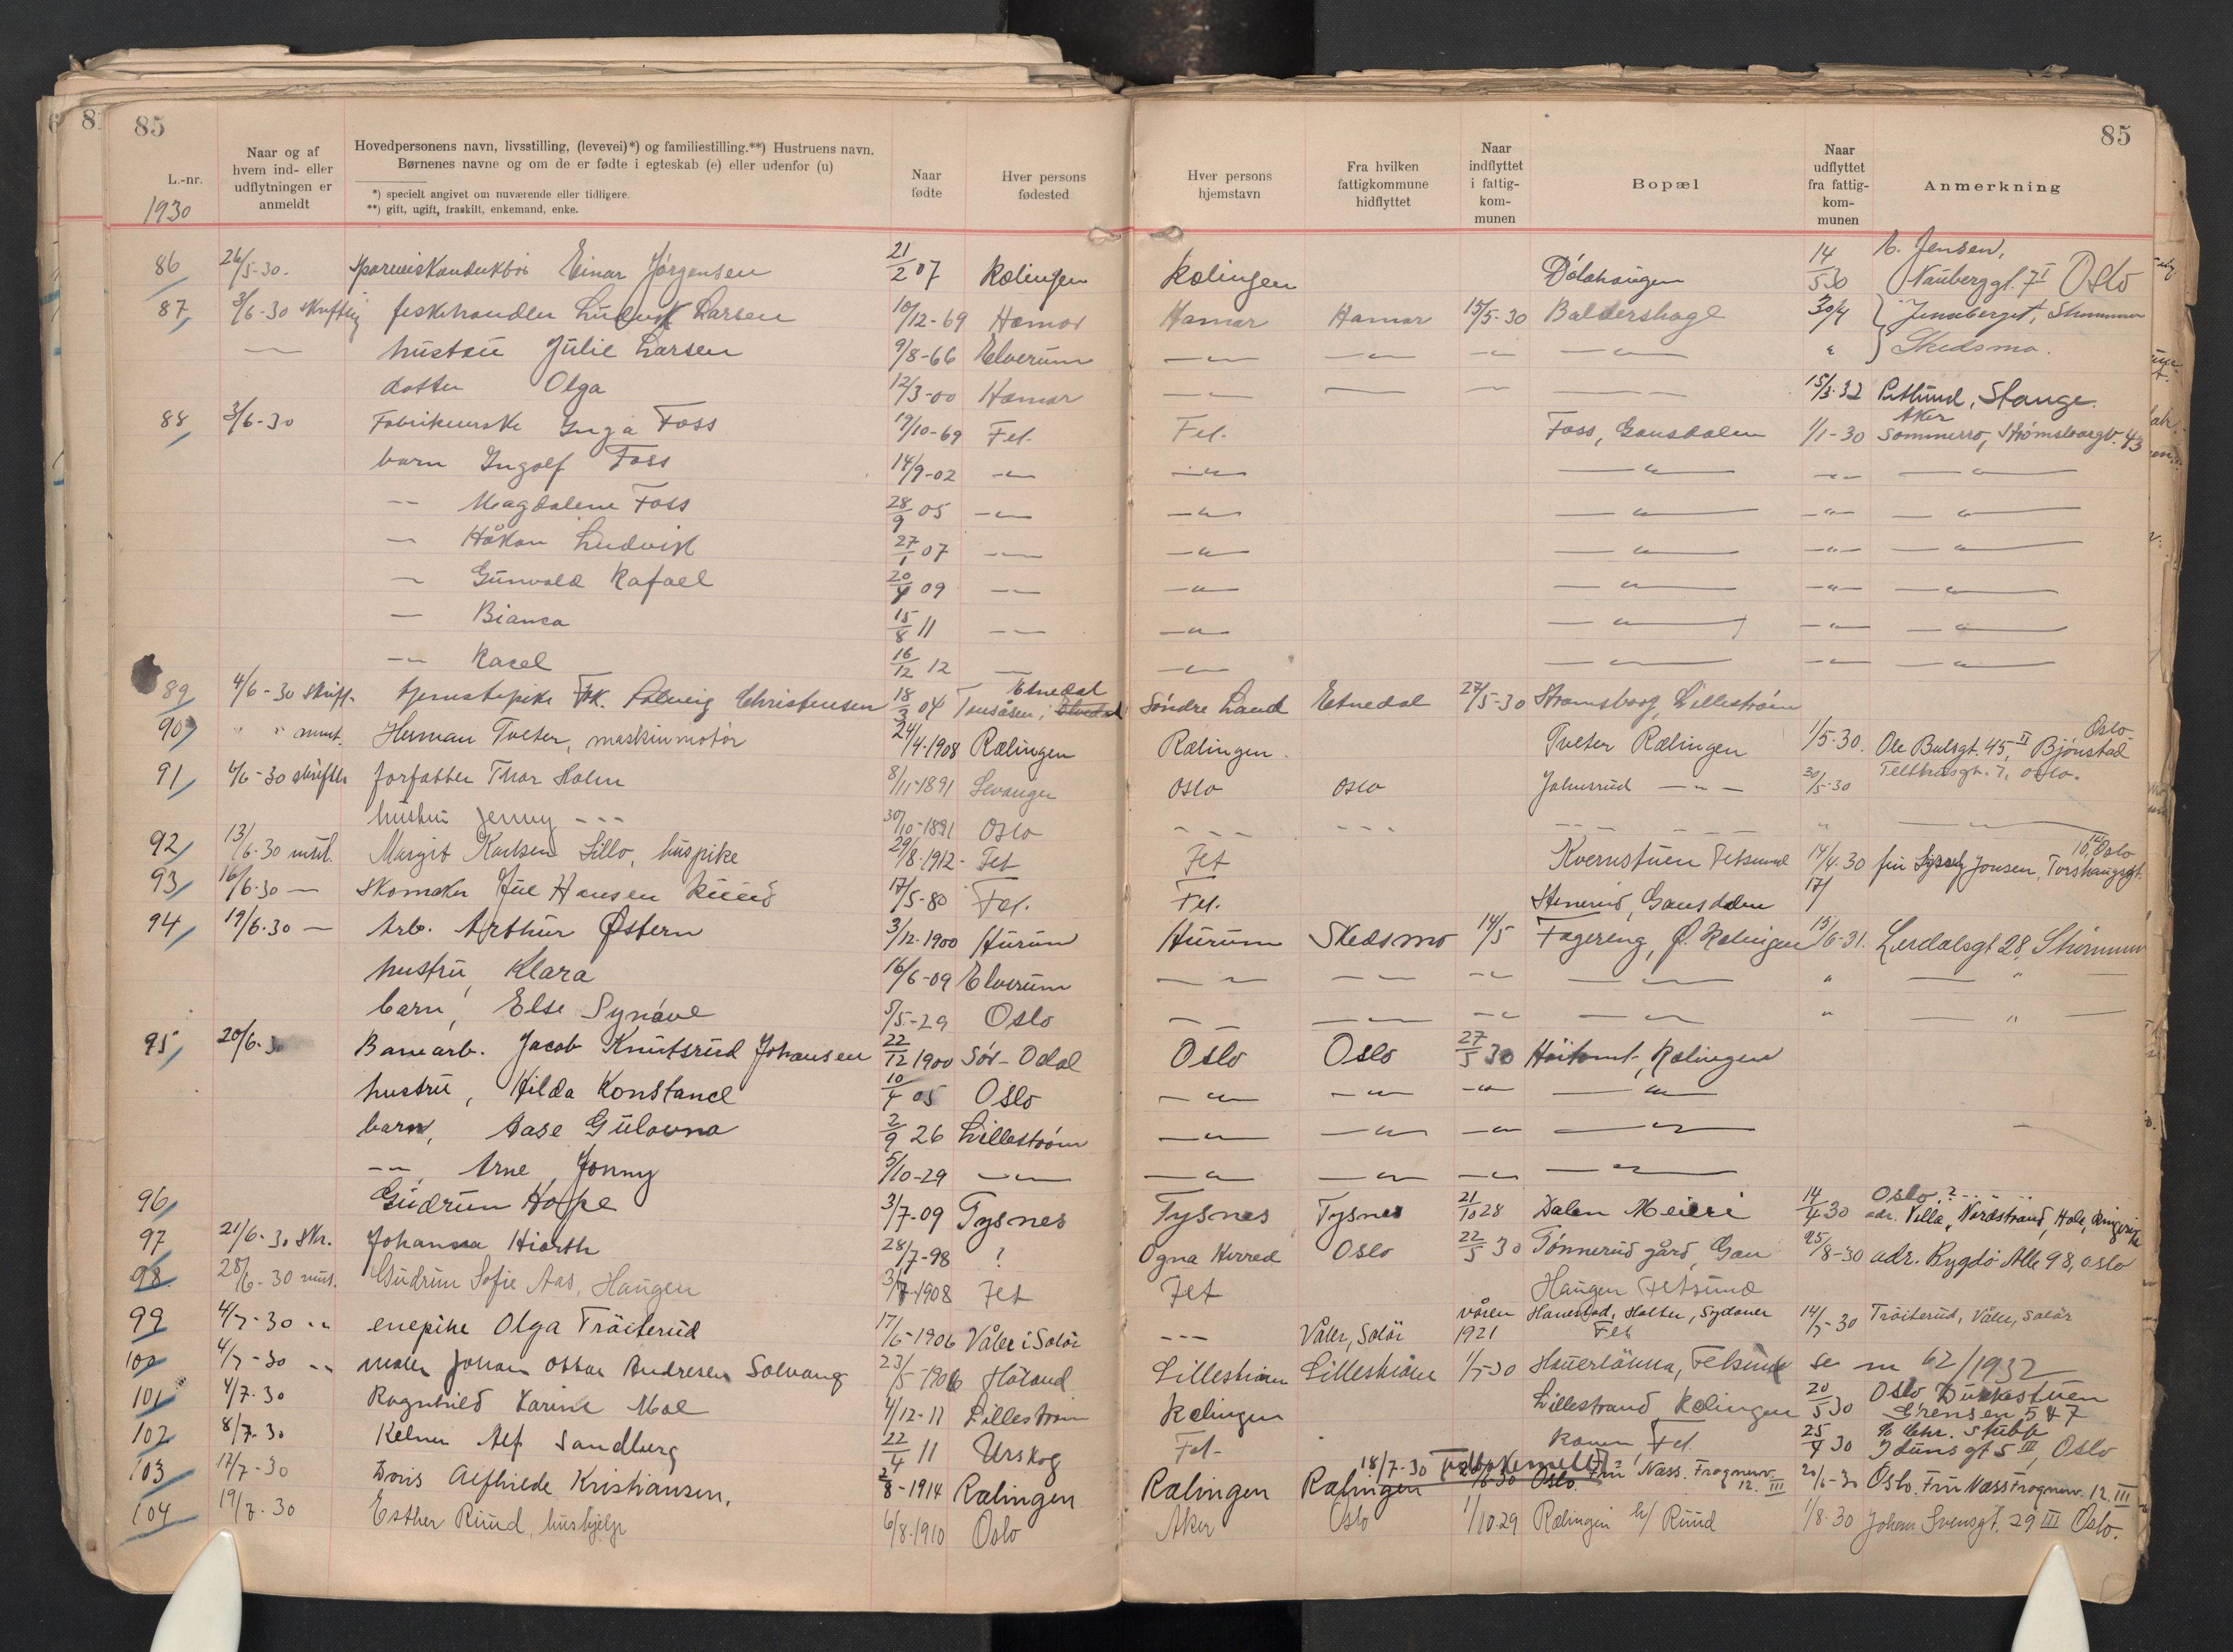 85
85
L.-nr.
1930
Naar og af hvem ind- eller udflytningen er anmeldt
Hovedpersonens navn, livsstilling, (levevei)*) og familiestilling.**) Hustruens navn.
Børnenes navne og om de er fødte i egteskab (e) eller udenfor (u)
*) specielt angivet om nuværende eller tidligere.
**) gift, ugift, fraskilt, enkemand, enke.
Naar fødte
Hver persons fødested
Hver persons hjemstavn
Fra hvilken fattigkommune hidflyttet
Naar indflyttet i fattig-kommunen
Bopæl
Naar udflyttet fra fattig-kommunen
Anmerkning
86 26/5-30. Einar Jørgensen 21/2 07 Rælingen Rælingen Dølahaugen 14/5 30 Jensen, 7 I Oslo
87 3/6-30 fiskehandler Ludvik Larsen 10/12-69 Hamar Hamar Hamar 15/5-30 Baldershage 30/4 Strømmen
— hustru Julie Larsen 9/8-66 Elverum —"— —"— —"— —"— " Skedsmo.
datter Olga 12/3-00 Hamar —"— — — — 15/3-32 Stange.
88 3/6-30 Inga Foss 9/10-69 Fet. Fet. Foss, Gansdalen 1/1-30 Aker Sommerro, Strømsborgv. 43
barn Ingolf Foss 14/9-02 —"— —"— —"— —"— —"—
—"— Magdalene Foss 28/9 05 —"— —"— —"— —"— —"—
— Håkon Ludvik 27/1 07 —"— —"— —"— —"— —"—
— Gunvald Rafael 20/4 09 —"— —"— —"— —"— —"—
— Bianca 15/8 11 —"— —"— —"— —"— —"—
—"— Racel 16/12 12 — —"— —"— —"— —"—
89 4/6-30 skriff. tjenestepike Frk. Solveig Christensen 18/3 04 Tonsåsen, Etnedal Søndre Land Etnedal 27/5-30 Stromsborg, Lillestrøm
90 " " munt. Herman Tveter, maskinmotør 24/4.1908 Rælingen Rælingen. Tveter Rælingen 1/5-30. Ole Bulsgt. 45, II Bjønstad Oslo.
91 4/6-30 forfatter Thor Holm 8/11-1891 Levanger Oslo Oslo —"— 30/5-30 Telthusgt. 7, Oslo.
hustru Jenny --- 30/10-1891 Oslo --- --- — " —
92 13/6-30 Margit Karlsen Lillo, huspike 29/8-1912- Fet Fet Kvernstuen Fetsund 14/4.30 fru Jonsen, Oslo
93 16/6-30 — Skomaker Jul Hansen Ruud 17/5-80 Fet. Fet. Stenerud, Gansdalen 17/
94 19/6-30 — Arb. Arthur Østern 3/12-1900 Hurum Hurum Skedsmo 14/5 Fagereng, Ø. Rælingen 15/6-31. Lerdalsgt 28, Strømmen
hustru, Klara 16/6-09 Elverum —"— —"— —"— —"— " — " —
barn, Else Synøve 5/5-29 Oslo —"— —"— —"— —"— " — " —
95 20/6-30 Jacob Knutsrud Johansen 22/12 1900 Sør-Odal Oslo Oslo 27/5 30 Høitomt, Rælingen
hustru, Hilda Konstance 10/4 05 Oslo —"— —"— —"— —"—
barn, Aase Gulovna 2/9 26 Lillestrøm —"— —"— —"— —"—
—"— Arne Jonny 5/10-29 —"— —"— —"— —"— —"—
96 Gudrun Hope 3/7-09 Tysnes Tysnes Tysnes 21/10 28 Dalen Meieri 14/4 30 Oslo ? adr. Villa, Nordstrand, Hole, Ringerike
97 21/6-30 Skr. Johanna Hiorth 28/7-98 ? Ogna Herred Oslo 22/5 30 Tønnerud gård, Gan 25/8-30 adr. Bygdø Alle 98, Oslo
98 28/6-30 Gudrun Sofie Aas, Haugen 3/7-1908 Fet Fet Haugen Fetsund
99 4/7-30 " enepike Olga Träiterud 17/6-1906 Våler i Solør --- Våler, Solør våren 1921 Holter, Fet 14/5-30 Träiterud, Våler, Solør
100 4/7-30 " maler Johan Oskar Andresen Solvang 23/5-1906 Høland Lillestrøm Lillestrøm 1/5-30 Fetsund se nr 62/1932
101 4/7-30 Ragnhild Karine Moe 4/12-11 Lillestrøm Rælingen Lillestrand Rælingen 20/5 30 Oslo Grensen 5 & 7
102 8/7-30 Kelner Alf Sandberg 22/4 11 Urskog Fet- Fet. 25/4 30 % Chr. Stubb Idunsgt 5 III, Oslo
103 12/7-30 Doris Alfhilde Kristiansen, 2/8-1914 Rælingen Rælingen Rælingen 18/7-30 Oslo. Fru Næss. Frognerv. 12. III 20/6-30 Oslo. Fru Næss Frognerv. 12. III
104 19/7-30 Esther Ruud, hushjelp 6/8-1910 Oslo Aker Oslo 1/10.29 Rælingen h/ Ruud 1/8-30 Johan Svensgt. 29 III Oslo.